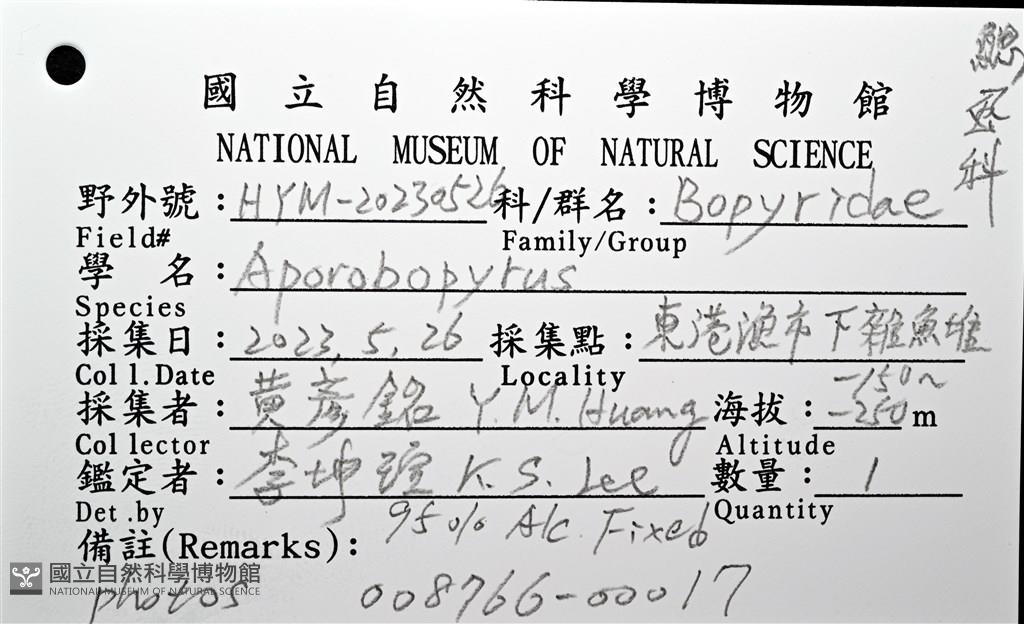 國立自然科學博物館
NATIONAL MUSEUM OF NATURAL SCIENCE
鰓蝨科
野外號：HYM-20230526 科/群名：Bopyridae
Field# Family/Group
學 名：Aporobopyrus
Species
採集日：2023.5.26 採集點：東港漁市下雜魚堆
Coll.Date Locality
採集者：黃彥銘 Y.M. Huang 海拔：-150~-250m
Collector Altitude
鑑定者：李坤瑄 K.S. Lee 數量：1
Det.by Quantity
95% Alc. Fixed
備註(Remarks)：
photos 008766-00017
國立自然科學博物館
NATIONAL MUSEUM OF NATURAL SCIENCE